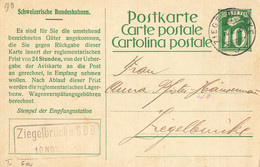 Schweizerische Bundesbahnen.
Es sind für Sie die umstehend
bezeichneten Güter angekommen,
die Sie gegen Rückgabe dieser
Karte innert der reglementarischen
Frist von 24 Stunden, von der Ueber-
gabe der Aviskarte an die Post
an gerechnet, in Empfang nehmen
wollen. Nach Ablauf dieser Frist
werden die reglementarischen Lager-
bezw. Wagenverspätungsgebühren
berechnet.
Stempel der Empfangsstation
Ziegelbrücke S.B.B
10 NOV
Postkarte
Carte postale
Cartolina postale
10
Frau
Ziegelbrücke